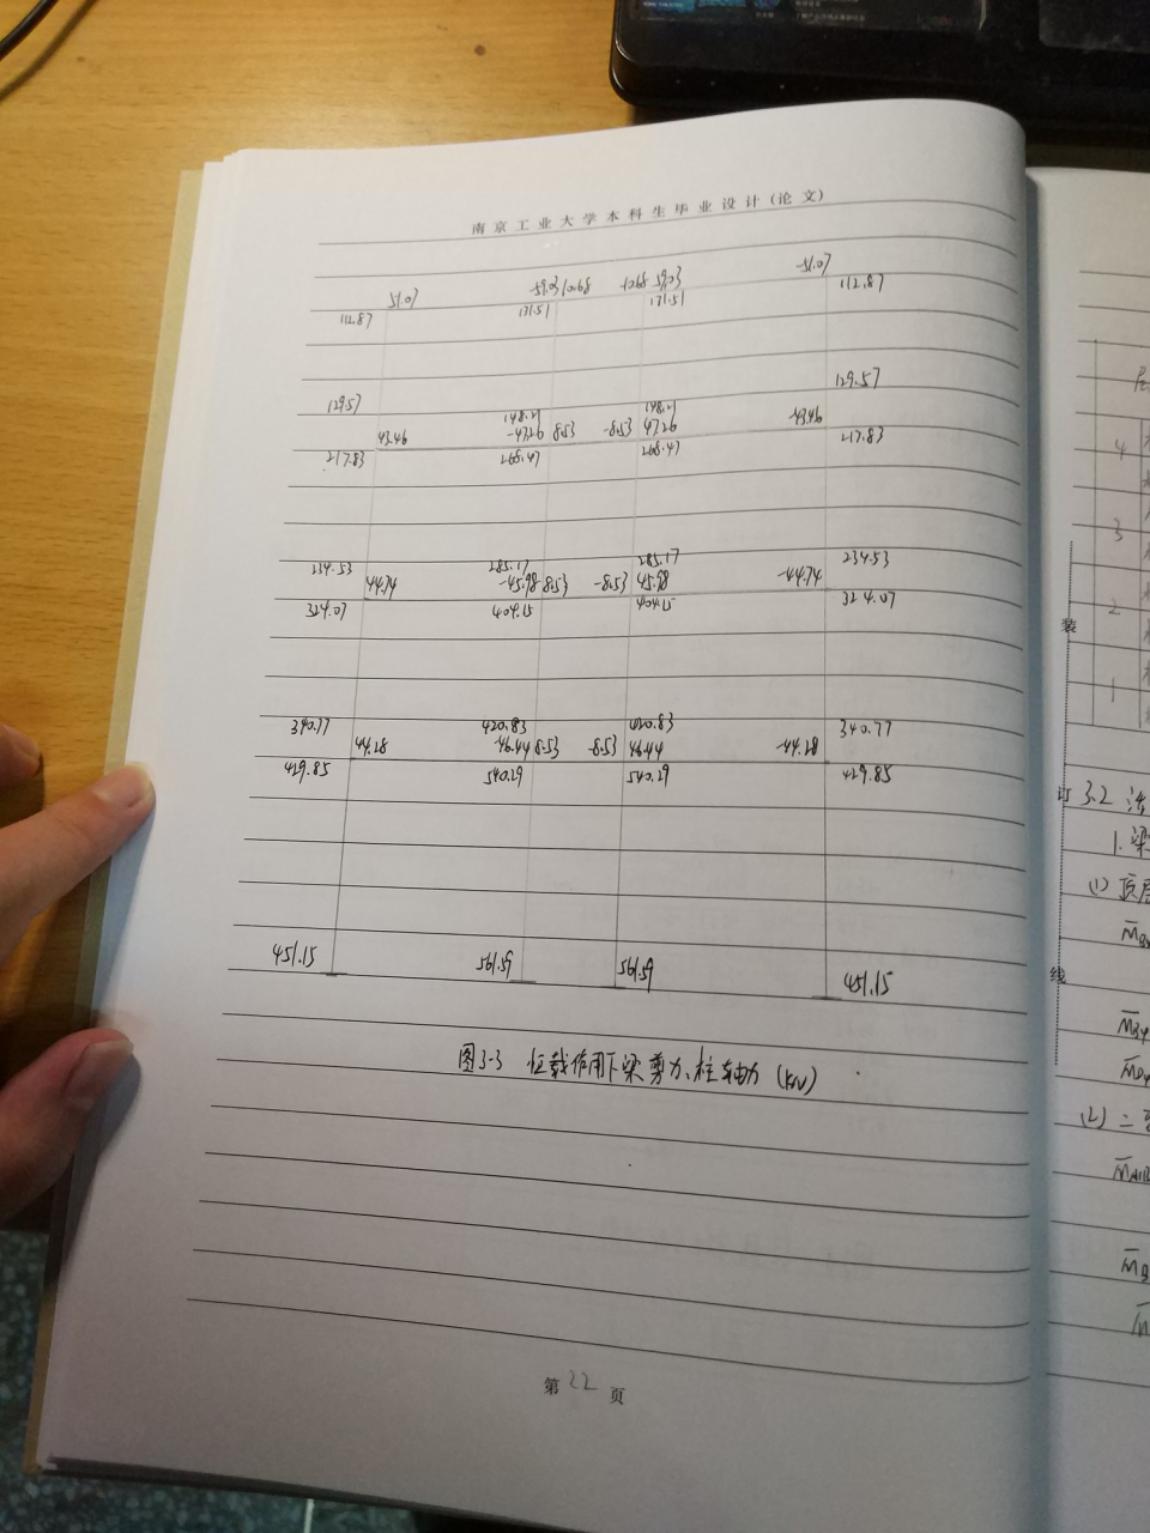 南京工业大学本科生毕业设计(论文)
-51.07
51.07 -59.03 10.68 -10.68 59.03 112.87
112.87 171.51 171.51
129.57
129.57 148.21 148.21
43.46 -47.26 8.53 -8.53 47.26 -43.46
217.83 268.47 268.47 217.83
234.53 285.17 285.17 234.53
44.74 -45.98 8.53 -8.53 45.98 -44.74
324.07 404.15 404.15 324.07
340.77 420.83 420.83 340.77
44.28 -46.44 8.53 -8.53 46.44 -44.28
429.85 540.29 540.29 429.85
451.15 561.59 561.59 451.15
图3-3 恒载作用下梁剪力、柱轴力 (kN)
第 22 页
4
3
2
1
装
订
线
3.2 活
1. 梁
(1) 顶层
(2) 二